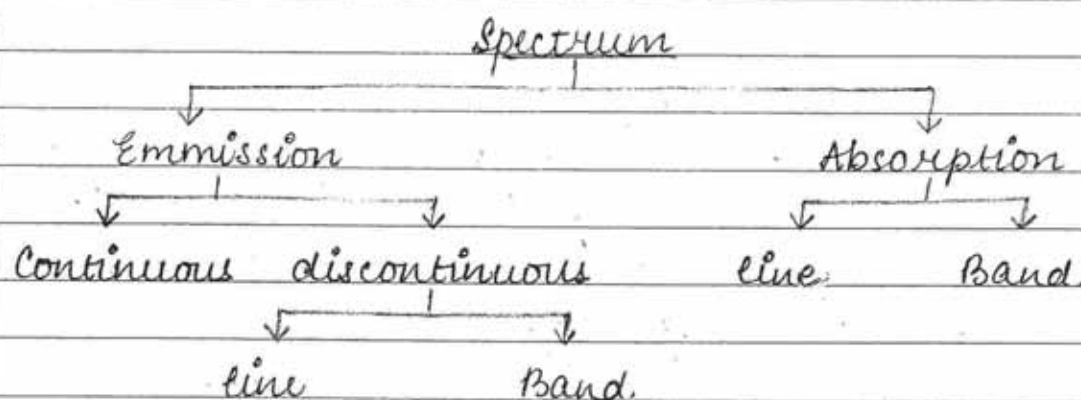 Spectrum
Emmission Absorption
Continuous discontinuous line. Band.
line Band.